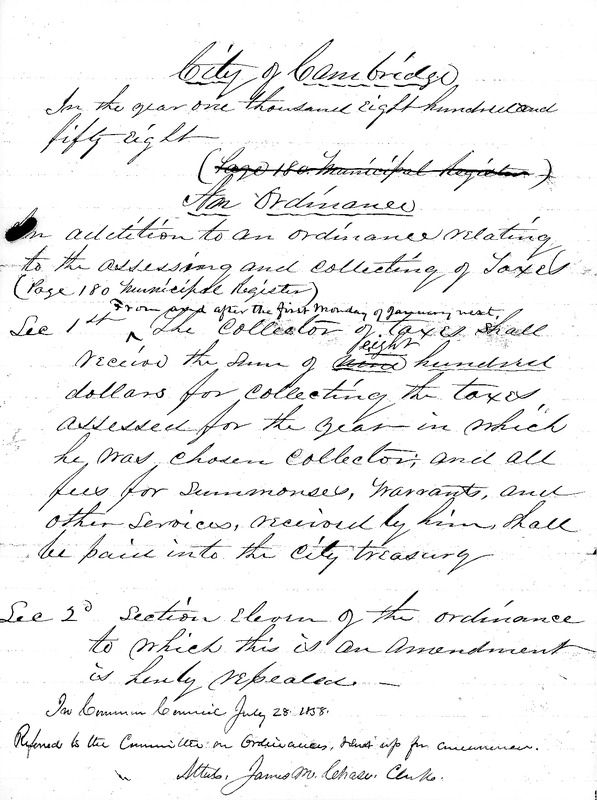 City of Cambridge
In the year one thousand eight hundred and
fifty eight
(Page 180. Municipal Register)
An Ordinance
In addition to an ordinance relating
to the assessing and collecting of Taxes
(Page 180 Municipal Register)
From and after the first Monday of January next,
Sec 1st The Collector of taxes shall
eight
receive the sum of nine hundred
dollars for collecting the taxes
assessed for the year in which
he was chosen Collector, and all
fees for summonses, warrants, and
other services, received by him, shall
be paid into the city treasury
Sec 2d Section Eleven of the ordinance
to which this is an amendment
is herby repealed. —
In Common Council July 28. 1858.
Referred to the Committee on Ordinances, sent up for concurrence.
Attest, James M. Chase. Clerk.